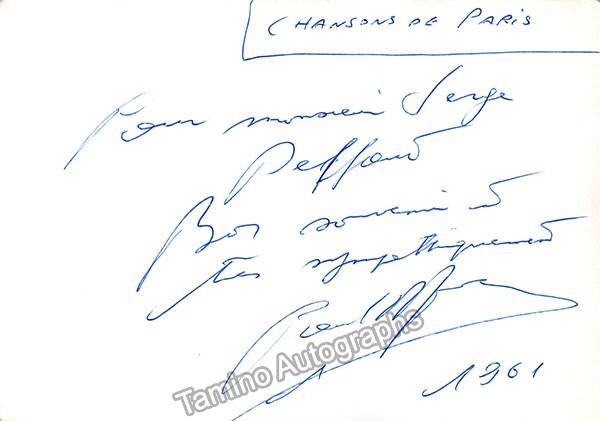 CHANSONS DE PARIS
Pour monsieur Serge
Peffaud
Bon souvenir et
très sympathiquement
Tamino Autographs
1961